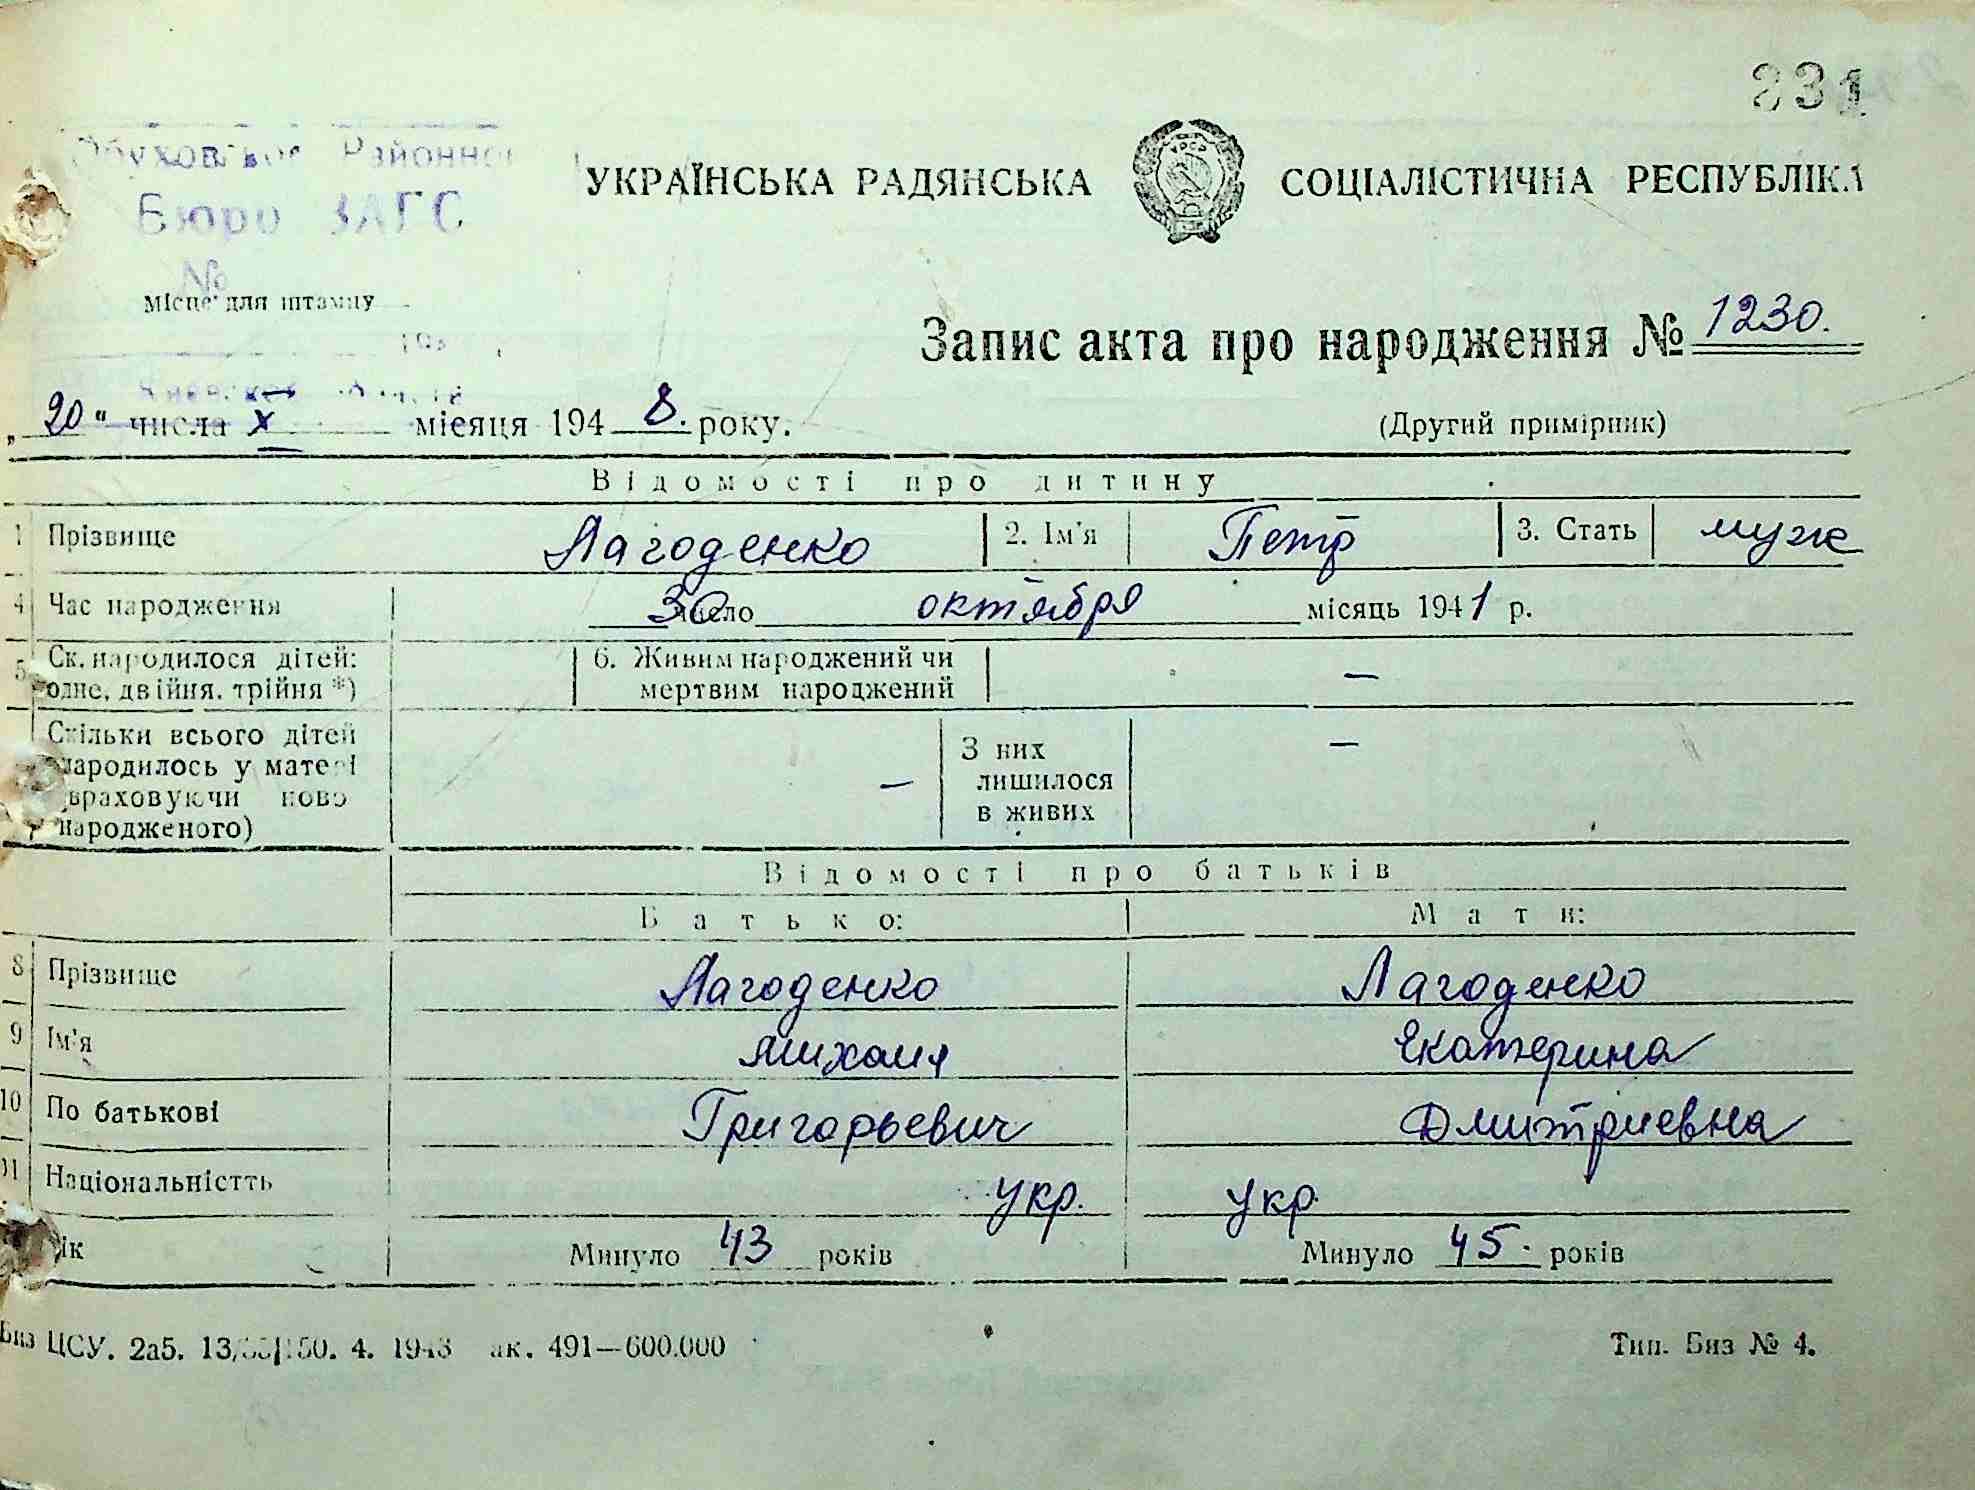 231
Районно
Бюро ЗАГС
№
УКРАЇНСЬКА РАДЯНСЬКА СОЦІАЛІСТИЧНА РЕСПУБЛІКА
місце для штампу
Запис акта про народження № 1230.
„20“ числа X місяця 1948. року.
(Другий примірник)
Відомості про дитину
1 Прізвище Лагоденко 2. Ім'я Петр 3. Стать муж
4 Час народження 30 число октября місяць 1941 р.
5 Ск. народилося дітей: одне, двійня, трійня *) 6. Живим народжений чи мертвим народжений —
Скільки всього дітей народилось у матері враховуючи ново народженого) — З них лишилося в живих —
Відомості про батьків
Батько: Мати:
8 Прізвище Лагоденко Лагоденко
9 Ім'я Михаил Екатерина
10 По батькові Григорьевич Дмитриевна
11 Національністть укр. укр
Вік Минуло 43 років Минуло 45. років
Биз ЦСУ. 2а5. 4. 491—600.000
Тип. Биз № 4.